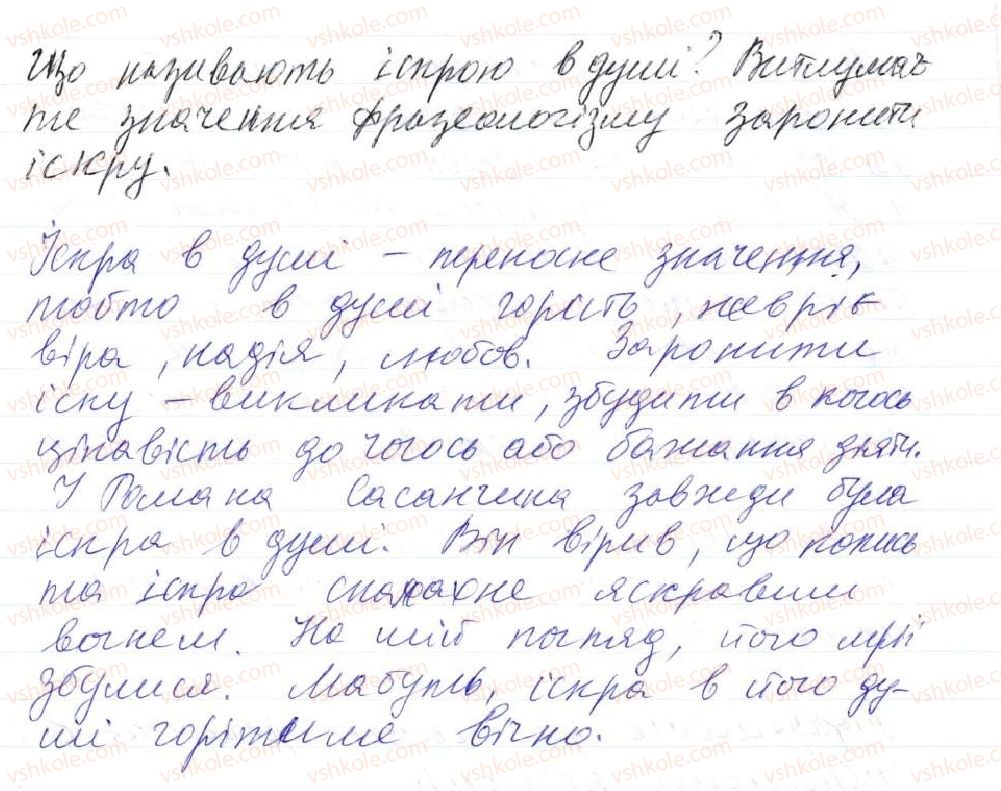 Що називають іскрою в душі? Витлумач
те значення фразеологізму заронити
іскру.
Іскра в душі – переносне значення,
тобто в душі горить, жевріє
віра, надія, любов. Заронити
іску – викликати, збудити в когось
цікавість до чогось або бажання діяти.
У Романа Сасанчина завжди була
іскра в душі. Він вірив, що колись
та іскра спалахне яскравим
вогнем. На мій погляд, його мрії
збулися. Мабуть, іскра в його ду-
ші горітиме вічно.